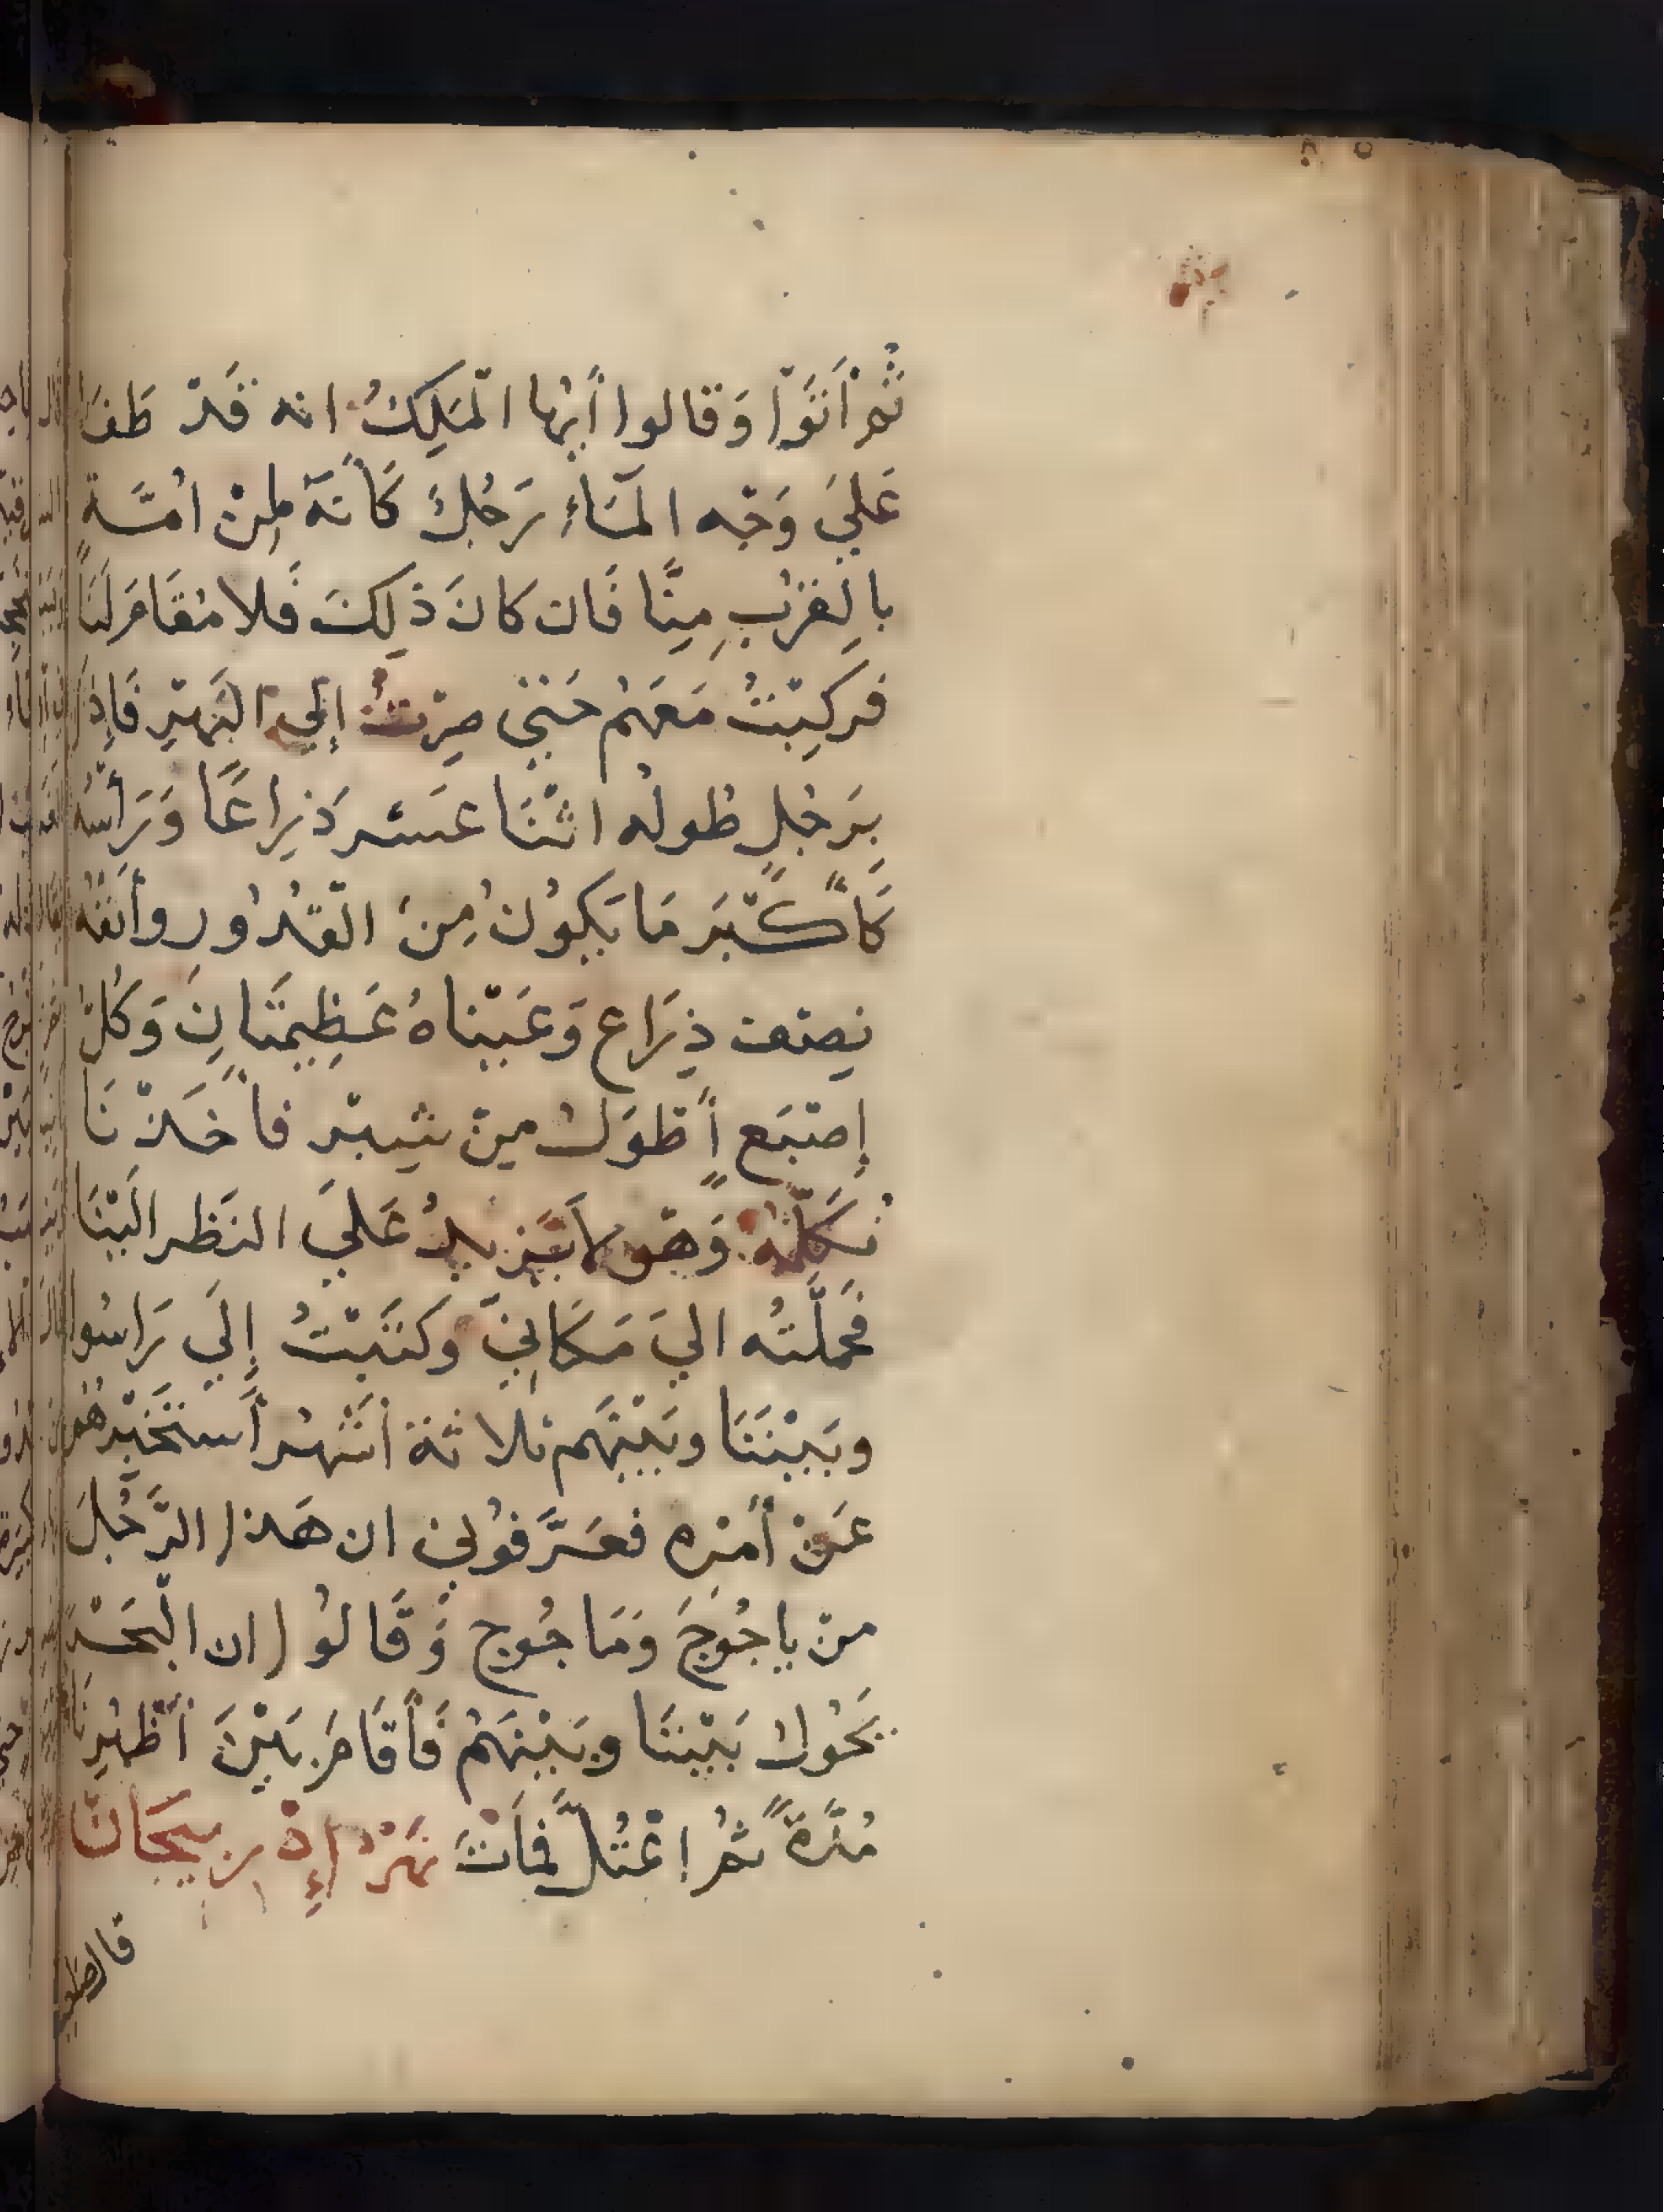 ثُمَّ أَتَوْا وَقالوا أَيُّها الْمَلِكُ انه قَدْ طَفَا
عَلَيَ وَجْه الْمَاءِ رَجُلٌ كَأَنَّهُ مِنْ اُمَّة
بالِقُرْبِ مِنَّا فَان كانَ ذٰلِكَ فَلا مُقَامَ لَنَا
فركِبْتُ مَعَهُم حَتىّ صِرْتُ إلي النَهْرِ فَإِذَا
بِرَجُلٍ طُولُه اثْنَا عَشَر ذِرَاعًا وَرَأْسُه
كَأَكْبَر مَا يَكُونُ مِنَ الْقُدُورِ وأَنفُهُ
نِصْف ذِرَاع وَعَيْناهُ عَظِيمَتَانِ وَكُلّ
إِصْبَع أَطْوَلُ مِنْ شِبْر فأَخَذْنَا
نُكَلِّمُهُ وَهْوَ لاَ يَزِيدُ عَلَيَ النَظَر اِلَيْنَا
فَحَمَلْتُه اليَ مَكَانِيَ وَكتَبْتُ إِلَي رَاسُوا
وبَيْنَنَا وبَيْنَهم ثلاثة أَشْهُر أَسْتَخْبِرُهُم
عَنْ أَمْرِه فعَرَّفوُنِي ان هَذا الرَّجُلَ
مِنْ ياجُوجَ وَمَاجُوج وَقَالوُا ان الْبَحْر
يَحُولُ بَيْنَنَا وبَيْنَهُم فَأَقَامَ بَيْنَ أَظْهُرِنَا
مُدَّةً ثُمَّ اعْتُلَّ فَمَاتَ نَهْرُ إِذْرِبيجَانَ
قال صاحب